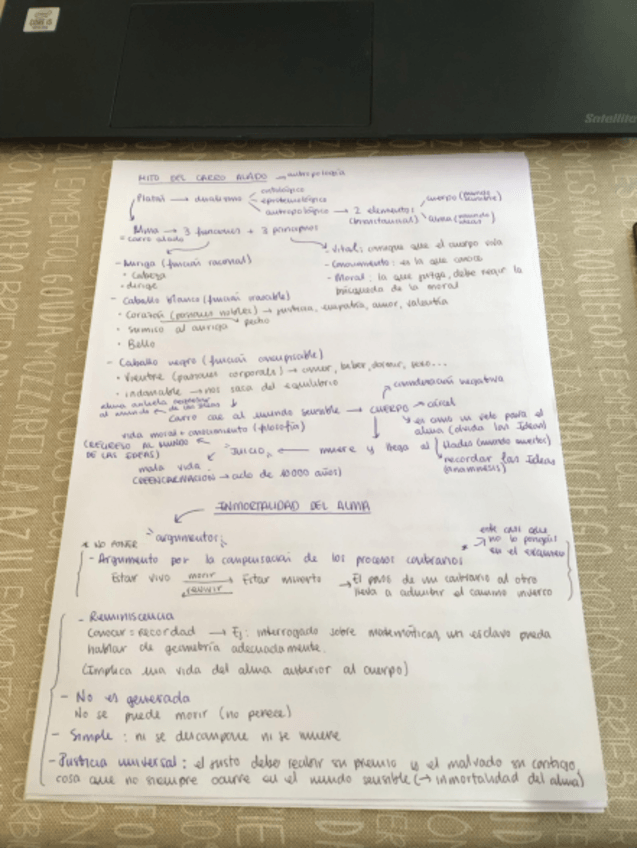 CORE i5
Satellite
MITO DEL CARRO ALADO → antropología
Platón → dualismo
ontológico
epistemológico
antropológico → 2 elementos (sustancial)
cuerpo (mundo sensible)
alma (mundo ideas)
Alma → 3 funciones + 3 principios
= carro alado
- Auriga (función racional)
• cabeza
• dirige
- Vital: consigue que el cuerpo viva
- Conocimiento: es la que conoce
- Moral: la que juzga, debe regir la
búsqueda de la moral
- Caballo blanco (función irascible)
• Corazón (pasiones nobles) → justicia, empatía, amor, valentía
pecho
• sumiso al auriga
• Bello
- Caballo negro (función concupiscible)
• Vientre (pasiones corporales) → comer, beber, dormir, sexo...
• indomable → nos saca del equilibrio
alma anhela regresar
al mundo de las ideas
Carro cae al mundo sensible → CUERPO
consideración negativa
cárcel
es como un velo para el
alma (olvida las Ideas)
vida moral + conocimiento (filosofía)
(REGRESO AL MUNDO
DE LAS IDEAS)
"JUICIO" ← muere y llega al
Hades (mundo muertos)
recordar las Ideas
(anamnesis)
mala vida
(REENCARNACIÓN → ciclo de 10000 años)
INMORTALIDAD DEL ALMA
"argumentos"
* NO PONER
este casi que
no lo pongáis
en el examen
- Argumento por la compensación de los procesos contrarios *
Estar vivo morir revivir Estar muerto → El paso de un contrario al otro
lleva a admitir el camino inverso
- Reminiscencia
Conocer = recordad → Ej: interrogado sobre matemáticas, un esclavo pueda
hablar de geometría adecuadamente.
(Implica una vida del alma anterior al cuerpo)
- No es generada
No se puede morir (no perece)
- Simple: ni se descompone ni se mueve
- Justicia universal: el justo debe recibir su premio y el malvado su castigo,
cosa que no siempre ocurre en el mundo sensible (→ inmortalidad del alma)